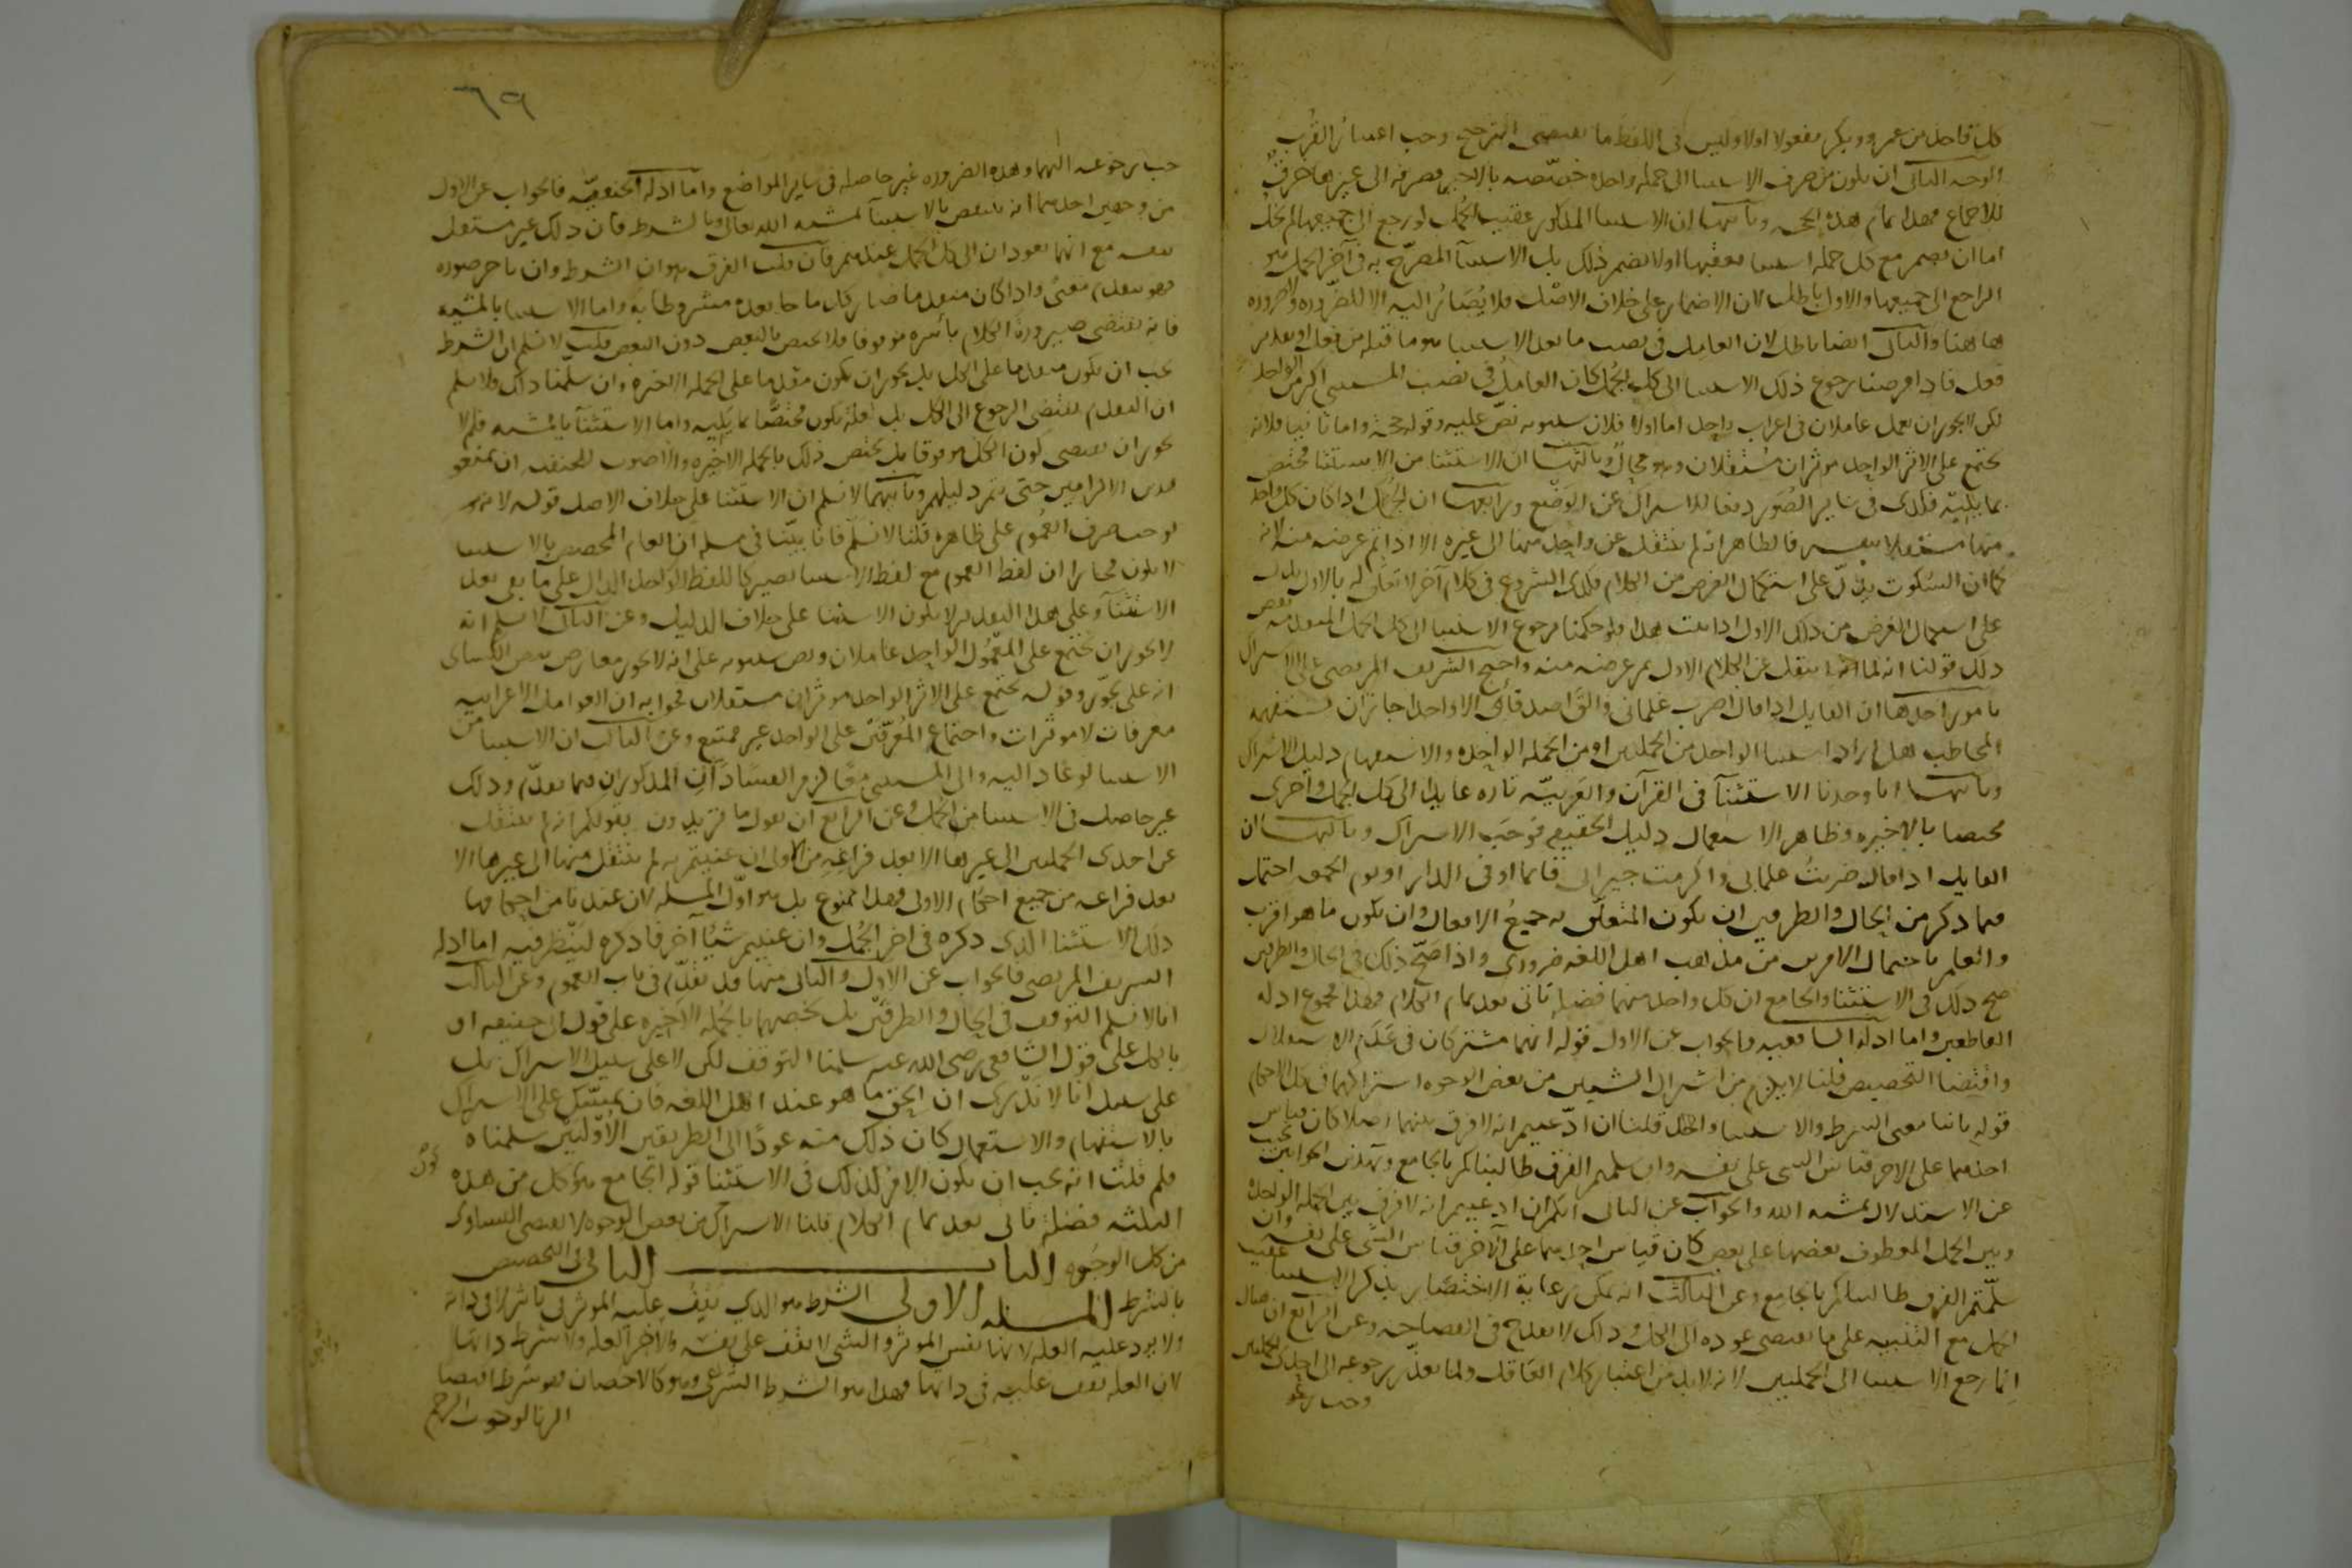 كل واحد من عمرو وبكر مفعولا اولا وليس في اللفظ ما يقتضي الترجيح وجب اعتبار القرب
الوجه الثاني ان يكون من صرف الاستثنا الى جملة واحدة خصصه بالاخيرة فصرفه الى غيرها خرق
للاجماع فهذا تمام هذه الحجة وثالثها ان الاستثنا المذكور عقيب الجمل لو رجع الى جميعها لم يخل
اما ان يضمر مع كل جملة استثنا يعقبها او لا يضمر ذلك بل الاستثنآ المصرح به في آخر الجمل هو
الراجع الى جميعها والاول باطل لان الاضمار على خلاف الاصل فلا يُصَارُ اليه الا للضروره ولا ضروره
هاهنا والثاني ايضا باطل لان العامل في نصب ما بعد الاستثنا هو ما قبله من فعل او تقدير
فعل فاذا فرضنا رجوع ذلك الاستثنا الى كل الجمل كان العامل في نصب المستثنى اكثر من الواحد
لكن لا يجوز ان يعمل عاملان في اعراب واحد اما اولا فلان سيبويه نص عليه وقوله حجة واما ثانيا فلانه
يجتمع على الاثر الواحد موثران مستقلان وهو محال وثالثها ان الاستثنا من الاستثنا مختص
بما يليه فكذى في ساير الصُوَر دفعا للاشتراك عن الوَضْع ورابعها ان الجمل اذا كان كل واحد
منها مستقلا بنفسه فالظاهر انه لم ينتقل عن واحد منها الى غيره الا اذا تم غرضه منه لانه
كما ان السكوت يدل على استكمال الغرض من الكلام فكذى الشروع في كلام آخر لا تعلق له بالاول يدل
على استكمال الغرض من ذلك الاول اذا ثبت هذا فلو حكمنا برجوع الاستثنا الى كل الجمل المتقدمة نقض
ذلك قولنا انه لما انتقل عن الكلام الاول تم غرضه منه واحتج الشريف المرتضى على الاشتراك
بامور احدها ان القايل اذا قال اضرب غلماني والق اصدقائى الا واحدا جاز ان يستفهم
المخاطب هل اراد استثنا الواحد من الجملتين او من الجملة الواحده والاستفهام دليل الاشتراك
وثانيها انا وجدنا الاستثنآ في القرآن والعَرَبيّه تاره عايدا الى كل الجمل واخرى
مختصا بالاخيره وظاهر الاستعمال دليل الحقيقه فوَجَبَ الاشتراك وثالثها ان
القايل اذا قال ضربتُ غلماني واكرمت جيراني قائما او في الدار او يوم الجمعه احتمل
فيما ذكر من الحال والظرفين ان يكون المتعلق به جميعُ الافعال وان يكون ما هو اقرب
والعلم باحتمال الامرين من مذهب اهل اللغه ضروري واذا صَحّ ذلك في الحال والظرفين
صح ذلك في الاستثنا والجامع ان كل واحد منهما فضله تاتي بعد تمام الكلام فهذا مجموع ادله
القاطعين واما ادله الشافعيه فالجواب عن الاول قوله انهما مشتركان في عَدَم الاستقلال
واقتضا التخصيص قلنا لا يلزم من اشتراك الشيين من بعض الوجوه اشتراكهما في كل الاحكام
قوله ثانيا معنى الشرط والاستثنا واحد قلنا ان ادّعيتم انه لا فرق بينهما اصلا كان قياس
احدهما على الاخر قياس الشى على نفسه وان سلمتم الفرق طالبناكم بالجامع وبهذين الجوابين نجيب
عن الاستدلال بمشيه الله والجواب عن الثانى انكم ان ادعيتم انه لا فرق بين الجملة الواحدة
وبين الجمل المعطوف بعضها على بعض كان قياس احديهما على الآخر قياس الشى على نفسه وان
سلّمتم الفرق طالبناكم بالجامع وعن الثالث انه يمكن رعاية الاختصار بذكر الاستثنا عقيب
الجمل مع التنبيه على ما يقتضى عوده الى الكل وذلك لا يقدح في الفصاحه وعن الرابع ان يقال
انما رجع الاستثنا الى الجملتين لانه لا بد من اعتبار كلام العاقل ولما تعذر رجوعه الى احدى الجملتين
وجب رجو
٦٩
جب رجوعه اليهما وهذه الضروره غير حاصله في ساير المواضع واما ادلة الحنفيّه فالجواب عن الاول
من وجهين احدهما انه ينتقض بالاستثنآ بمشية الله تعالى وبالشرط فان ذلك غير مستقل
بنفسه مع انهما يعودان الى كل الجمل عندهم فان قلت الفرق هو ان الشرط وان تاخر صوره
فهو متقدم معنىً واذا كان متقدما صار كل ما جا بعده مشروطا به واما الاستثنا بالمشيه
فانه يقتضى صيرورة الكلام بأسره موقوفا فلا يختص بالبعض دون البعض قلت لا نسلم ان الشرط
يجب ان يكون متقدما على الكل بل يجوز ان يكون مقدما على الجملة الاخيره وان سلّمنا ذلك فلا نسلم
ان التقدم يقتضى الرجوع الى الكل بل لعله يكون مختصًّا بما يليه واما الاستثنآ بالمشيه فلم لا
يجوز ان يقتضى كون الكل موقوفا بل يختص ذلك بالجملة الاخيره والاصوب للحنفيه ان يمنعو
هذين الالزامين حتى يتم دليلهم وثانيهما لا نسلم ان الاستثنا على خلاف الاصل قوله لانه
يوجب صرف العموم على ظاهره قلنا لا نسلم فانا بيّنا في مسله ان العام المخصص بالاستثنا
لا يكون مجازا ان لفظ العموم مع لفظ الاستثنا تصير كاللفظ الواحد الدال على ما بقى بعد
الاستثنآ وعلى هذا التقدير لا يكون الاستثنا على خلاف الدليل وعن الثانى لا نسلم انه
لا يجوز ان يجتمع على المعْمُول الواحد عاملان ونص سيبويه على انه لا يجوز معارض بنص الكسائى
انه على يجوز وقوله يجتمع على الاثر الواحد موثران مستقلان فجوابه ان العوامل الاعرابيه
معرفات لا موثرات واجتماع المُعرّفَيْن على الواحد غير ممتنع وعن الثالث ان الاستثنا من
الاستثنا لو عاد اليه والى المستثنى معًا لزم الفسَادَان المذكوران فيما تقدّم وذلك
غير حاصل في الاستثنا من الجمل وعن الرابع ان نقول ما تريدون بقولكم انه لم ينتقل
عن احدى الجملتين الى غيرها الا بعد فراغه من الاولى ان عنيتم به لم ينتقل منها الى غيرها الا
بعد فراغه من جميع احكام الاولى فهذا ممنوع بل هو اوّل المسله لان عندنا من احكامها
ذلك الاستثنا الذى ذكره في اخر الجُمل وان عنيتم شيًا آخر فاذكره لننظر فيه اما ادلة
الشريف المرتضى فالجواب عن الاول والثانى منها قد تقدّم في باب العموم وعن الثالث
انا لا نسلم التوقف في الحال والظرفين بل نخصهما بالجملة الاخيره على قول ابي حنيفه او
بالكل على قول الشافعي رضى الله عنه سلمنا التوقف لكن لا على سبيل الاشتراك بل
على سبيل انا لا ندْرى ان الحق ما هو عند اهل اللغه فان تمسّك على الاشتراك
بالاستفهام والاستعمال كان ذلك منه عودًا الى الطريقين الاوّلَيْن سلمناه
فلم قلت انه يجب ان يكون الامر كذلك في الاستثنا قوله الجامع هو كون كل من هذه
الثلثه فضلة تاتى بعد تمام الكلام قلنا الاشتراك من بعض الوجوه لا يقتضى التساوى
من كل الوجوه الباب الثاني في التخصيص
بالشرط المسئلة الاولى الشرط هو الذي يقف عليه الموثر فى تاثيره لا في ذاته
ولا يرد عليه العله لانها نفس الموثر والشى لا يقف على نفسه ولا جزء العله ولا شرط ذاتها
لان العله تقف عليه في ذاتها فهذا هو الشرط الشرعى وهو كالاحصان فهو شرط اقتضا
الزنا لوجوب الرجم